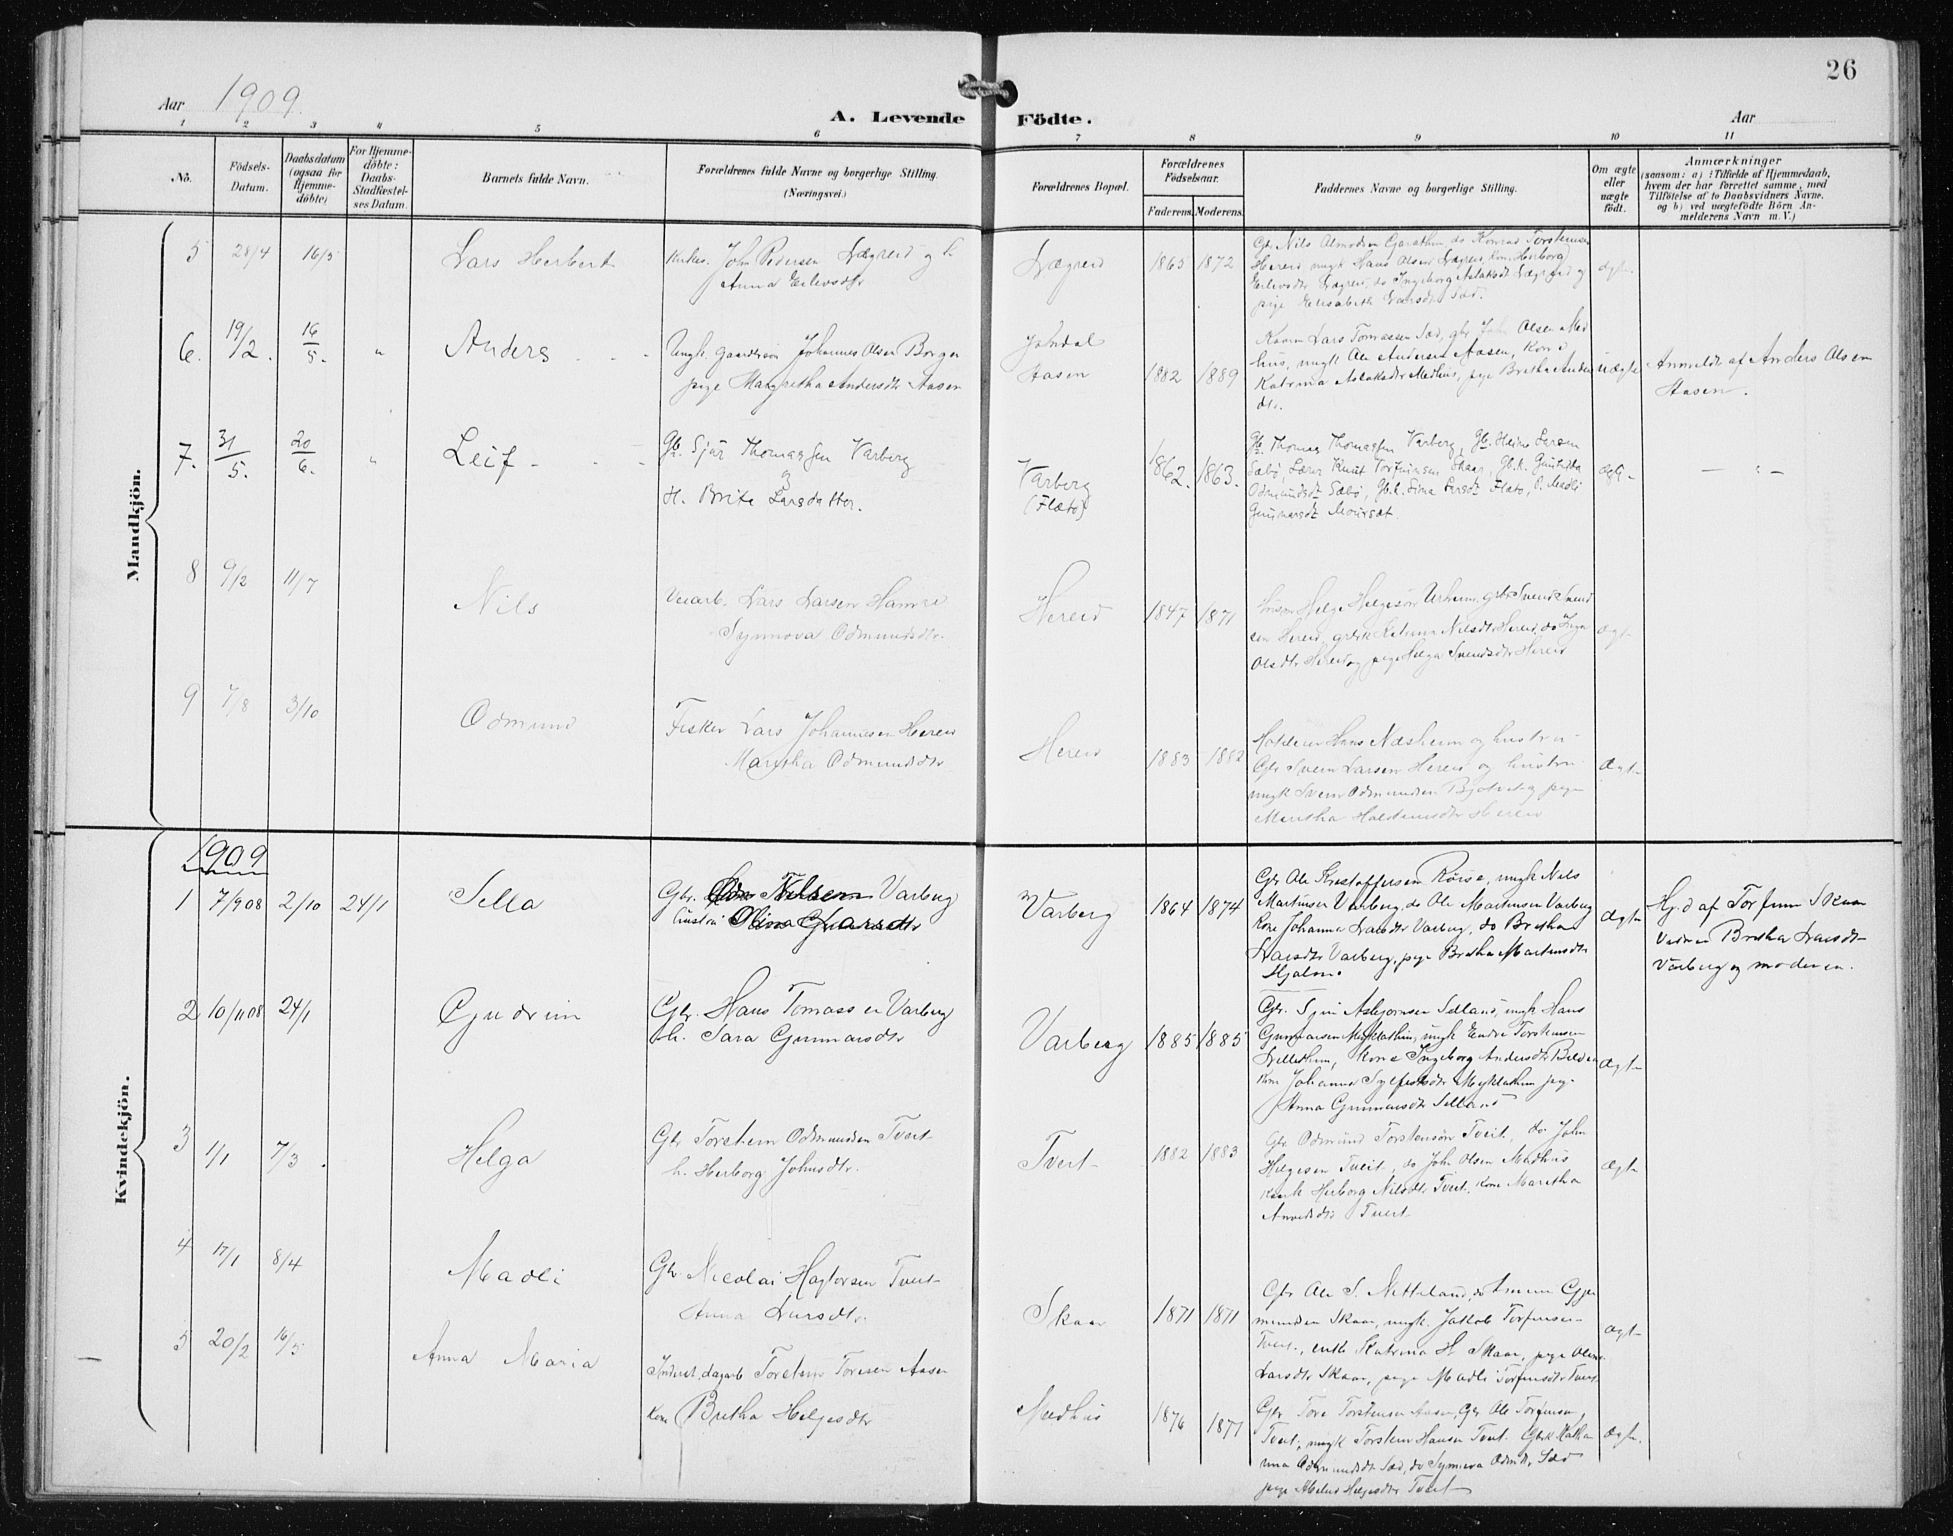 26
Aar 1909.
A. Levende Födte.
Aar
1 2 3 4 5 6 7 8 9 10 11
No.
Födsels-
Datum.
Daabsdatum
(ogsaa for
Hjemme-
döbte)
For Hjemme-
döbte:
Daabs-
Stadfæstel-
ses Datum.
Barnets fulde Navn.
Forældrenes fulde Navne og borgerlige Stilling.
(Næringsvei.)
Forældrenes Bopæl.
Forældrenes
Födselsaar.
Faderens. Moderens.
Faddernes Navne og borgerlige Stilling.
Om ægte
eller
uægte
födt.
Anmærkninger
(saasom: a) i Tilfælde af Hjemmedaab,
hvem der har forrettet samme, med
Tilföielse af to Daabsvidners Navne.
og b) ved uægtefödte Börn An-
melderens Navn m. V.)
Mandkjön.
5 28/4 16/5 Lars Herbert
John Pedersen Nægreid og h.
Anna Eilevsdtr
Nægreid 1865 1872
Gbr Nils Almodsen Garathun, do Konrad Torsteinsen
Hereid, ungk Hans Olsen Nægreid, Kone Herborg
Eilevsdtr Nægreid, do Ingeborg Aslaksdt Nægreid og
pige Elisabeth Larsdtr Sæd.
ægte
6. 19/2. 16/5. " Anders
Ungk. gaardersøn Johannes Olsen Borgen
pige Margretha Andersdtr Aasen
Jondal
Aasen 1882 1889
Lars Tomassen Sæd, gbr John Olsen Med
hus, ungk Ole Andersen Aasen, Kone
Katrina Aslaksdtr Medhus, pige Bretha Anders
dtr.
uægte
Anmeldt af Anders Olsen
Aasen.
7. 31/5. 20/6. " Leif
Gb. Sjur Thomassen Varberg
og
H. Brita Larsdatter.
Varberg
(Flatø)
1862. 1863.
Gb. Thomas Thomassen Varberg, Gb. Heine Larsen
Sæbø, Lærer Knut Torfinnsen Skaar, Gb.k. Gunhilda
Odmundsdt. Sæbø, Gb.k. Sina Larsdt. Flatø, P. Madli
Gunnarsdt. Maursæt.
ægte
— " —
8 9/2 11/7 Nils
Veiarb. Lars Larsen Hamre
Synnøva Odmundsdtr.
Hereid 1847 1871
Helge Helgeson Urheim, gbr Svend Svend
sen Hereid, gbrk Katrina Nilsdtr Hereid, do Inga
Olsdtr Hereid og pige Helga Svendsdtr Hereid
ægte
9 7/8 3/10 Odmund
Fisker Lars Johannesen Hereid
Maritha Odmundsdtr
Hereid 1883 1882
Hans Næsheim og hustru
Gbr Svein Larsen Hereid og hustru
ungk Svein Odmundsen Bjotveit og pige
Maritha Halstensdtr Hereid
ægte
Kvindekjön.
1909
1 7/9 08 2/10 24/1 Sella
Gbr. Odm Nilsen Varberg
hustru Olina Gunarsdtr
Varberg 1864 1874
Gbr Ole Kristoffersen Røise, ungk Nils
Martinsen Varberg, do Ole Martinsen Varberg
Kone Johanna Larsdtr Varberg, do Bretha
Larsdtr Varberg, pige Bretha Martinsdtr
Hjalmo
ægte
Hj.d af Torfinn Skaar
Vidner Bretha Larsdt
Varberg og moderen.
2 10/11 08 24/1 Gudrun
Gbr. Hans Tomassen Varberg
h. Sara Gunnarsdtr
Varberg 1885 1885
Gbr. Sjur Asbjornsen Selland, ungk Hans
Gunnarsen Myklathun, ungk Endre Torsteinsen
Lillethun, Kone Ingeborg Andersdtr
Kone Johanna Sylfestsdtr Myklathun pige
Anna Gunnarsdtr Selland
ægte
3 1/1 7/3. Helga
Gbr Torstein Odmundsen Tveit
h. Herborg Johnsdtr.
Tveit 1882 1883
Gbr Odmund Torstenson Tveit, do John
Helgesen Tveit, do John Olsen Medhus
Herborg Nilsdtr Tveit, Kone Maritha
Tveit
ægte
4 17/1 8/4 Madli
Gbr Nicolai Hagtorsen Tveit
Anna Larsdtr.
Skaar 1871 1871
Gbr Ole S. Netteland, do Amund Gjer
mundsen Skaar, ungk. Jakob Torfinsen
Tveit, enke Katrina H. Skaar, pige Olina
Larsdtr Skaar, pige Madli Torfinsdtr Tveit
ægte
5 20/2 16/5 Anna Maria
Inderst, dagarb Torstein Toresen Aasen
Kone Bretha Helgesdtr
Medhus 1876 1877
Gbr Tore Torstensen Aasen, Gbr Ole Torfinsen
Tveit, ungk Torstein Hansen Tveit Gbrk Katha
rina Odmundsdtr Sæd, do Synneva Odmdtr Sæd
pige Helgesdtr Tveit
ægte